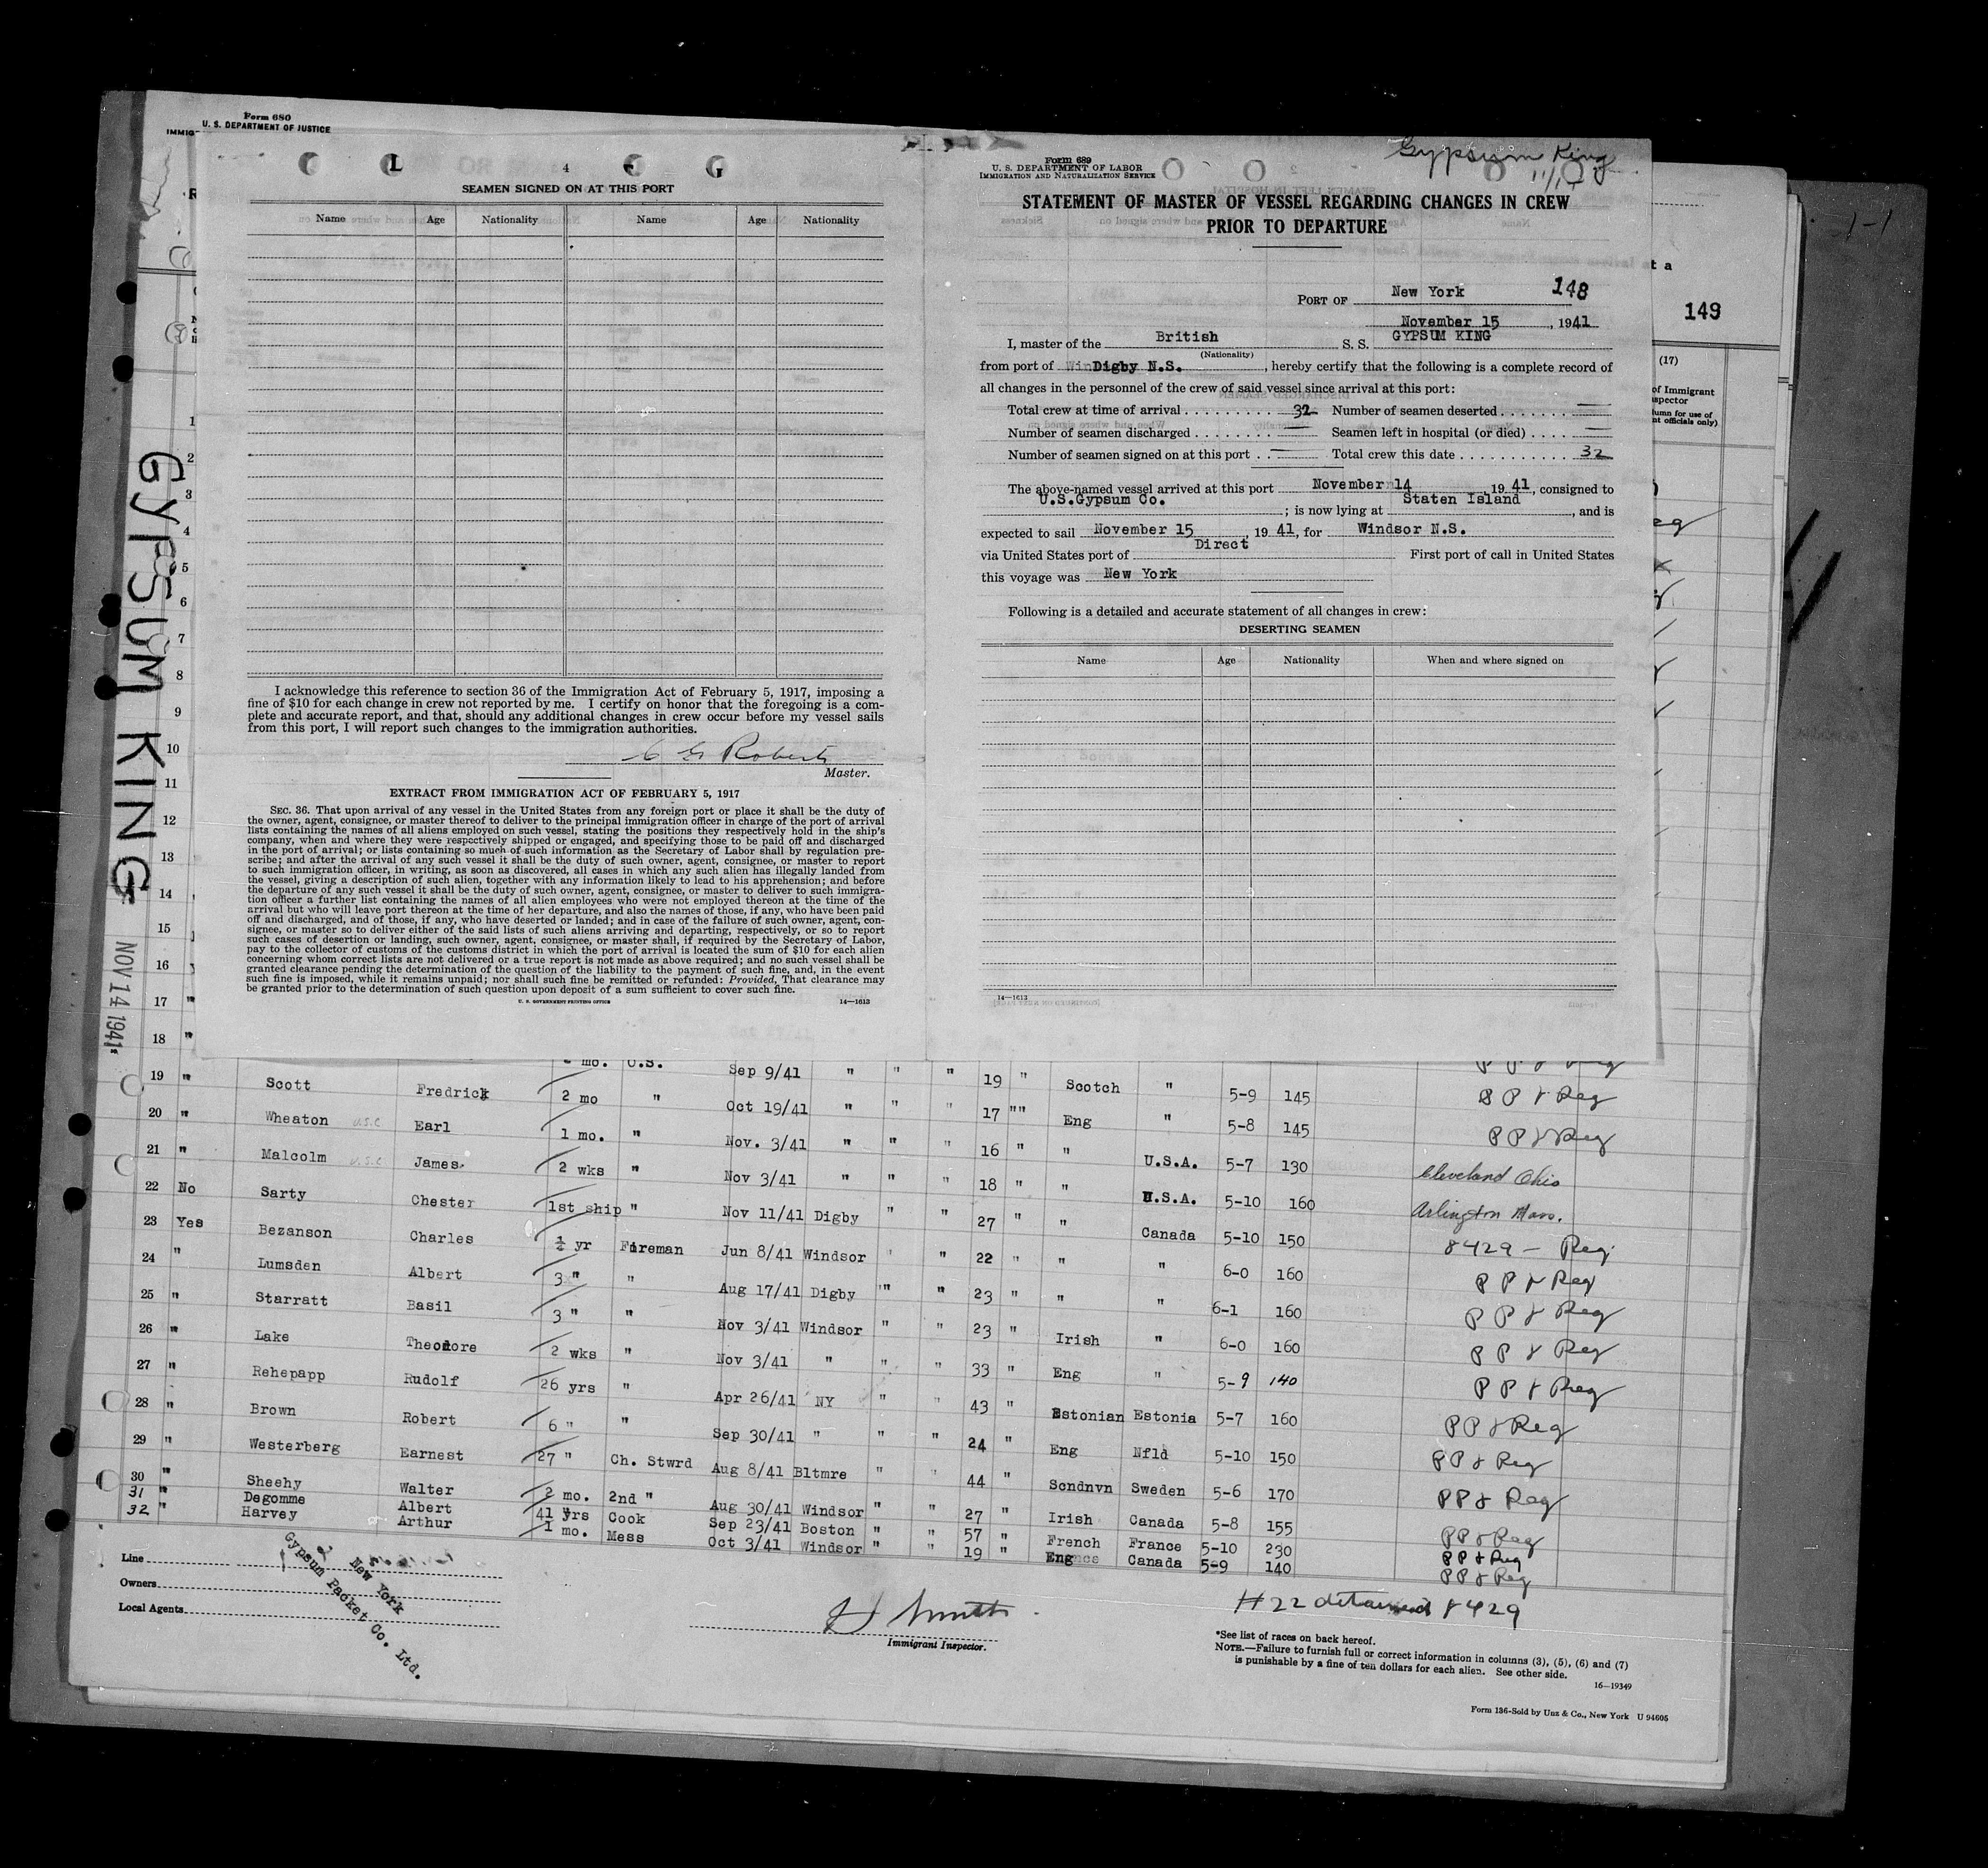 Form 680
U. S. DEPARTMENT OF JUSTICE
IMMIG
L 4 G
SEAMEN SIGNED ON AT THIS PORT
Name Age Nationality Name Age Nationality
I acknowledge this reference to section 36 of the Immigration Act of February 5, 1917, imposing a
fine of $10 for each change in crew not reported by me. I certify on honor that the foregoing is a com-
plete and accurate report, and that, should any additional changes in crew occur before my vessel sails
from this port, I will report such changes to the immigration authorities.
C G Roberts
Master.
EXTRACT FROM IMMIGRATION ACT OF FEBRUARY 5, 1917
SEC. 36. That upon arrival of any vessel in the United States from any foreign port or place it shall be the duty of
the owner, agent, consignee, or master thereof to deliver to the principal immigration officer in charge of the port of arrival
lists containing the names of all aliens employed on such vessel, stating the positions they respectively hold in the ship's
company, when and where they were respectively shipped or engaged, and specifying those to be paid off and discharged
in the port of arrival; or lists containing so much of such information as the Secretary of Labor shall by regulation pre-
scribe; and after the arrival of any such vessel it shall be the duty of such owner, agent, consignee, or master to report
to such immigration officer, in writing, as soon as discovered, all cases in which any such alien has illegally landed from
the vessel, giving a description of such alien, together with any information likely to lead to his apprehension; and before
the departure of any such vessel it shall be the duty of such owner, agent, consignee, or master to deliver to such immigra-
tion officer a further list containing the names of all alien employees who were not employed thereon at the time of the
arrival but who will leave port thereon at the time of her departure, and also the names of those, if any, who have been paid
off and discharged, and of those, if any, who have deserted or landed; and in case of the failure of such owner, agent, con-
signee, or master so to deliver either of the said lists of such aliens arriving and departing, respectively, or so to report
such cases of desertion or landing, such owner, agent, consignee, or master shall, if required by the Secretary of Labor,
pay to the collector of customs of the customs district in which the port of arrival is located the sum of $10 for each alien
concerning whom correct lists are not delivered or a true report is not made as above required; and no such vessel shall be
granted clearance pending the determination of the question of the liability to the payment of such fine, and, in the event
such fine is imposed, while it remains unpaid; nor shall such fine be remitted or refunded: Provided, That clearance may
be granted prior to the determination of such question upon deposit of a sum sufficient to cover such fine.
U. S. GOVERNMENT PRINTING OFFICE 14—1613
Gypsum King
11/14
Form 689
U. S. DEPARTMENT OF LABOR
IMMIGRATION AND NATURALIZATION SERVICE
STATEMENT OF MASTER OF VESSEL REGARDING CHANGES IN CREW
PRIOR TO DEPARTURE
PORT OF New York 148
November 15, 1941
I, master of the British S. S. GYPSUM KING
(Nationality)
from port of Digby N.S., hereby certify that the following is a complete record of
all changes in the personnel of the crew of said vessel since arrival at this port:
Total crew at time of arrival 32 Number of seamen deserted —
Number of seamen discharged — Seamen left in hospital (or died) —
Number of seamen signed on at this port — Total crew this date 32
The above-named vessel arrived at this port November 14 1941, consigned to
U.S.Gypsum Co. ; is now lying at Staten Island, and is
expected to sail November 15 1941, for Windsor N.S.
via United States port of Direct First port of call in United States
this voyage was New York
Following is a detailed and accurate statement of all changes in crew:
DESERTING SEAMEN
Name Age Nationality When and where signed on
14—1613
149
(17)
of Immigrant
spector
umn for use of
nt officials only)
GYPSUM KING
NOV 14 1941
1
2
3
4
5
6
7
8
9
10
11
12
13
14
15
16
17 "
18 "
mo. U.S. Sep 9/41 " " " 19 " Scotch " 5-9 145 P P & Reg
19 " Scott Fredrick 2 mo " Oct 19/41 " " " 17 "" Eng " 5-8 145 P P & Reg
20 " Wheaton U.S.C Earl 1 mo. " Nov. 3/41 " " " 16 " " U.S.A. 5-7 130 Cleveland Ohio
21 " Malcolm U.S.C James 2 wks " Nov 3/41 " " " 18 " " U.S.A. 5-10 160 Arlington Mass.
22 No Sarty Chester 1st ship " Nov 11/41 Digby " " 27 " " Canada 5-10 150 8429 — Reg
23 Yes Bezanson Charles ½ yr Fireman Jun 8/41 Windsor " " 22 " " " 6-0 160 P P & Reg
24 " Lumsden Albert 3 " " Aug 17/41 Digby " " 23 " " " 6-1 160 P P & Reg
25 " Starratt Basil 3 " " Nov 3/41 Windsor " " 23 " Irish " 6-0 160 P P & Reg
26 " Lake Theodore 2 wks " Nov 3/41 " " " 33 " Eng " 5-9 140 P P & Reg
27 " Rehepapp Rudolf 26 yrs " Apr 26/41 NY " " 43 " Estonian Estonia 5-7 160 PP & Reg
28 " Brown Robert 6 " " Sep 30/41 " " " 24 " Eng Nfld 5-10 150 PP & Reg
29 " Westerberg Earnest 27 " Ch. Stwrd Aug 8/41 Bltmre " " 44 " Scndnvn Sweden 5-6 170 PP & Reg
30 " Sheehy Walter 2 mo. 2nd " Aug 30/41 Windsor " " 27 " Irish Canada 5-8 155 PP & Reg
31 " Degomme Albert 41 yrs Cook Sep 23/41 Boston " " 57 " French France 5-10 230 PP & Reg
32 " Harvey Arthur 1 mo. Mess Oct 3/41 Windsor " " 19 " Eng Canada 5-9 140 PP & Reg
Line
Owners
Local Agents
New York
Gypsum Packet Co. Ltd.
H Smith
Immigrant Inspector.
#22 detained 8429
*See list of races on back hereof.
NOTE.—Failure to furnish full or correct information in columns (3), (5), (6) and (7)
is punishable by a fine of ten dollars for each alien. See other side.
16—19349
Form 136-Sold by Unz & Co., New York U 94605